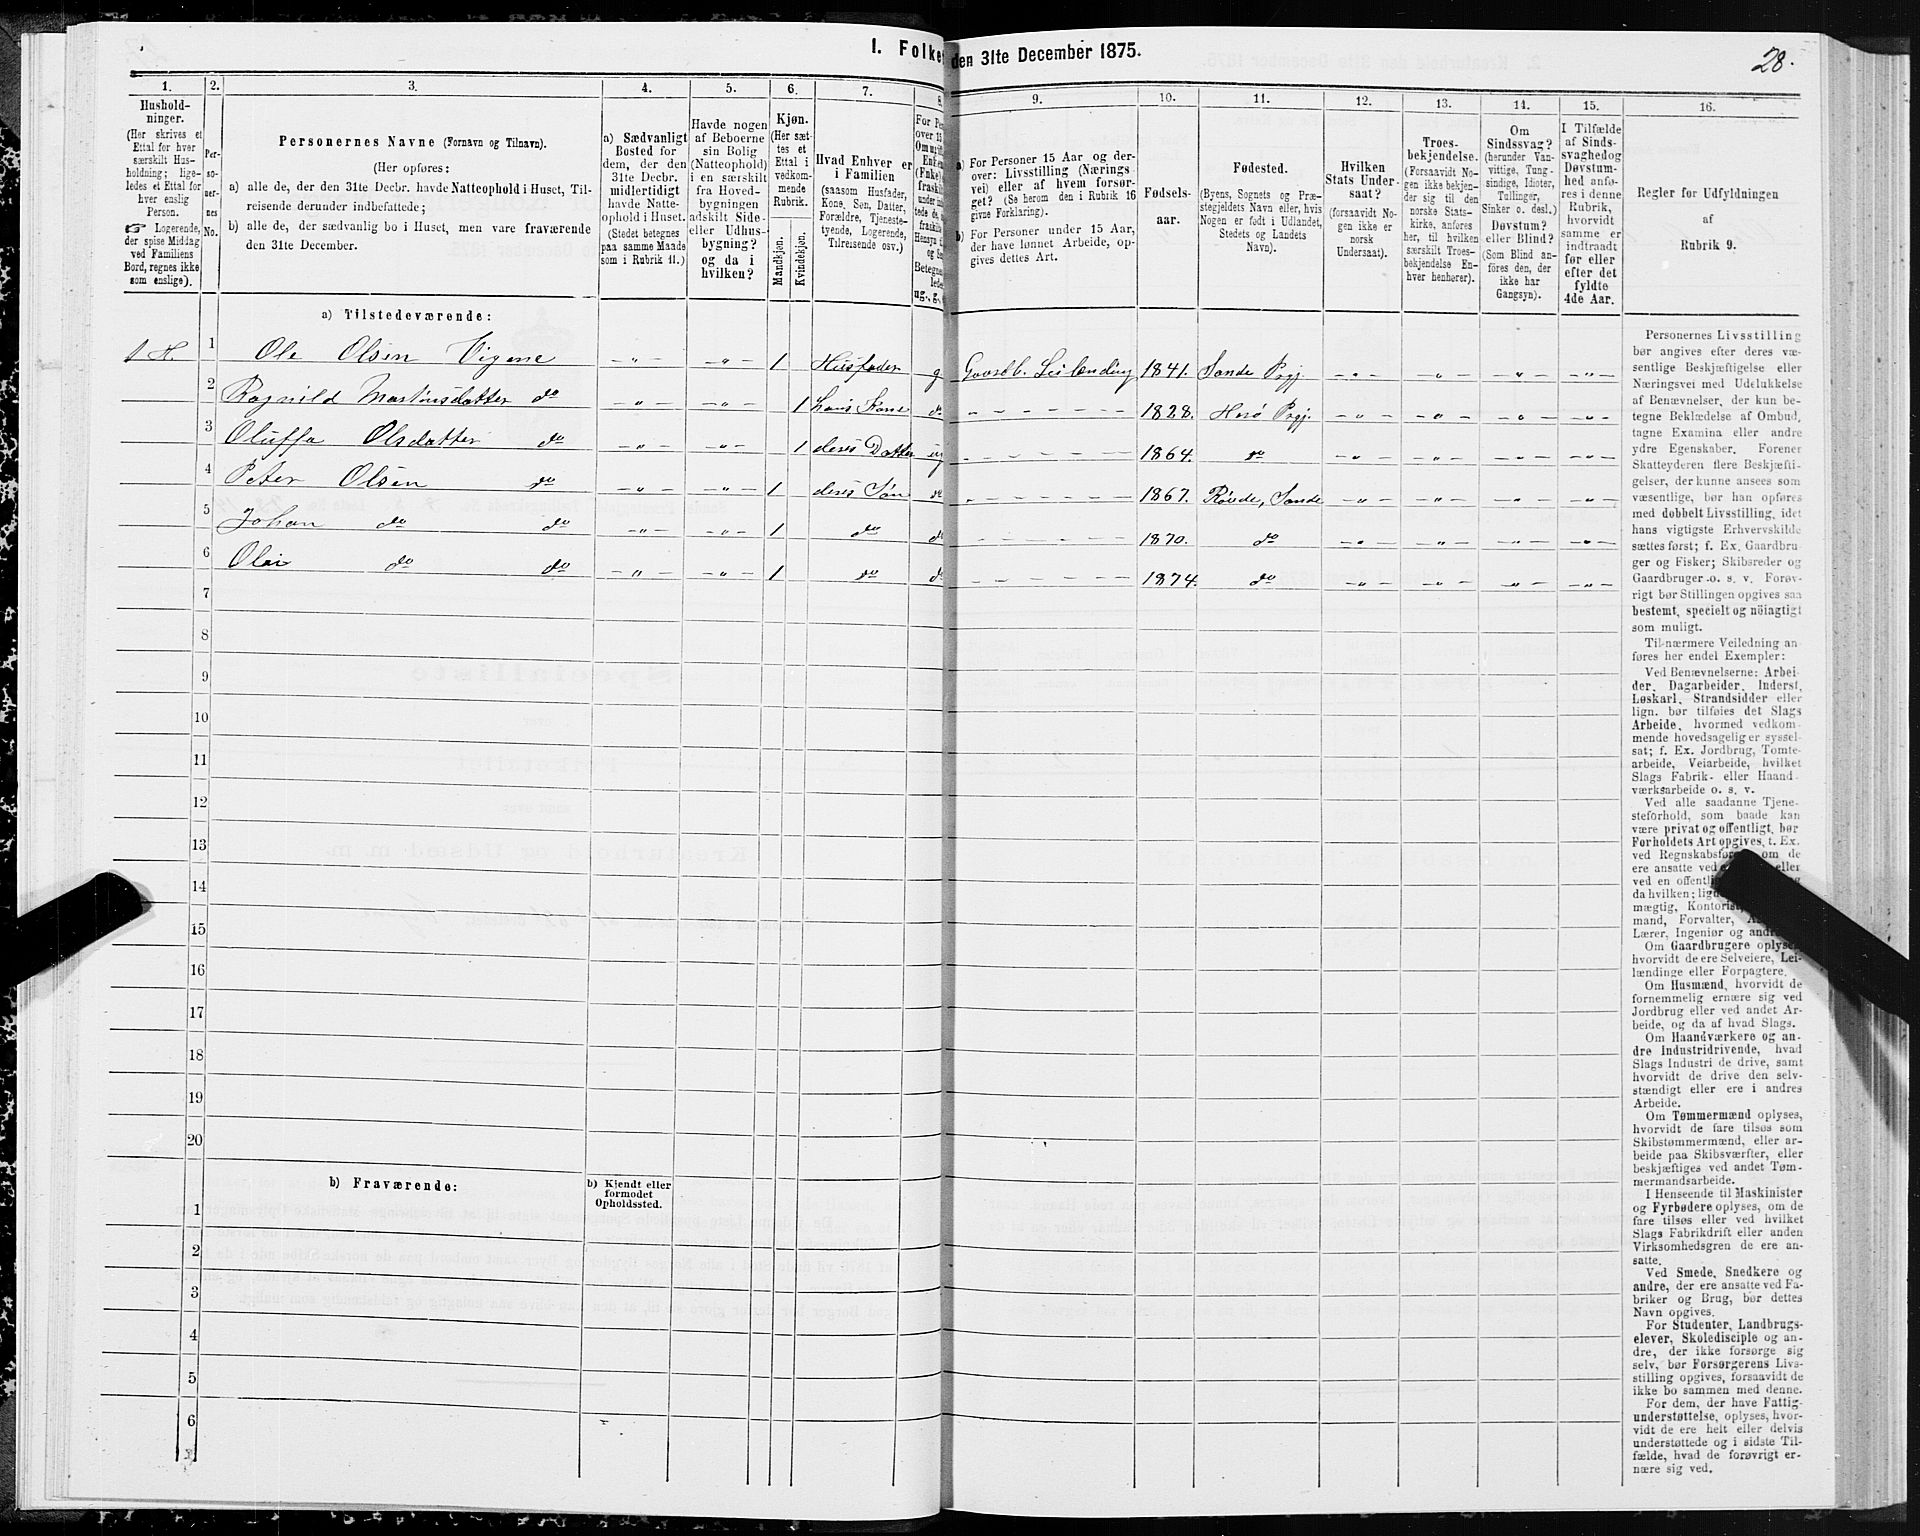 I. Folke den 31te December 1875.
28.
1.
2.
3.
4.
5.
6.
7.
8.
9.
10.
11.
12.
13.
14.
15.
16.
Hushold-
ninger.
(Her skrives et
Ettal for hver
særskilt Hus-
holdning; lige-
ledes et Ettal for
hver enslig
Person.
☞ Logerende,
der spise Middag
ved Familiens
Bord, regnes ikke
som enslige).
Per-
so-
ner-
nes
No.
Personernes Navne (Fornavn og Tilnavn).
(Her opføres:
a) alle de, der den 31te Decbr. havde Natteophold i Huset, Til-
reisende derunder indbefattede;
b) alle de, der sædvanlig bo i Huset, men vare fraværende
den 31te December.
a) Sædvanligt
Bosted for
dem, der den
31te Decbr.
midlertidigt
havde Natte-
ophold i Huset.
(Stedet betegnes
paa samme Maade
som i Rubrik 11.)
Havde nogen
af Beboerne
sin Bolig
(Natteophold)
i en særskilt
fra Hoved-
bygningen
adskilt Side-
eller Udhus-
bygning?
og da i
hvilken?
Kjøn.
(Her sæt-
tes et
Ettal i
vedkom-
mende
Rubrik.
Mandkjøn.
Kvindekjøn.
Hvad Enhver er
i Familien
(saasom Husfader,
Kone, Søn, Datter,
Forældre, Tjeneste-
tyende, Logerende,
Tilreisende osv.)
For Pe
over 15
Om
Enke
(Fnke)
fraskil
under in
tede de,
fraskil
Hensyn
og S
Betegne
lede
ug., g.,
a) For Personer 15 Aar og der-
over: Livsstilling (Nærings
vei) eller af hvem forsør-
get? (Se herom den i Rubrik 16
givne Forklaring).
b) For Personer under 15 Aar,
der have lønnet Arbeide, op-
gives dettes Art.
Fødsels-
aar.
Fødested.
(Byens, Sognets og Præ-
stegjeldets Navn eller, hvis
Nogen er født i Udlandet,
Stedets og Landets
Navn).
Hvilken
Stats Under-
saat?
(forsaavidt No-
gen ikke er
norsk
Undersaat).
Troes-
bekjendelse.
(Forsaavidt No-
gen ikke bekjen-
der sig til den
norske Stats-
kirke, anføres
her, til hvilken
særskilt Troes-
bekjendelse En-
hver henhører).
Om
Sindssvag?
(herunder Van-
vittige, Tung-
sindige, Idioter,
Tullinger,
Sinker o. desl.)
Døvstum?
eller Blind?
(Som Blind an-
føres den, der
ikke har
Gangsyn).
I Tilfælde
af Sinds-
svaghed og
Døvstum-
hed anfø-
res i denne
Rubrik,
hvorvidt
samme er
indtraadt
før eller
efter det
fyldte
4de Aar.
Regler for Udfyldningen
af
Rubrik 9.
a) Tilstedeværende:
1 H. 1 Ole Olsen Vigene - " - - " - 1 Husfader g Gaardb. Leilending 1841. Sande Prgj. - " - - " - - " - - " -
2 Ragnild Mastonsdatter do - " - - " - 1 hans Kone do - " - - - - 1828. Herø Prgj. - " - - " - - " - - " -
3 Oluffa Olsdatter do - " - - " - 1 deres Datter ug - " - - - - 1864. do - " - - " - - " - - " -
4 Peter Olsen do - " - - " - 1 deres Søn do - " - - - - 1867. Røvde, Sande - " - - " - - " - - " -
5 Johan do do - " - - " - 1 do do - - - - - 1870. do - " - - " - - " - - " -
6 Olai do do - " - - " - 1 do do - - - - - 1874. do - " - - " - - " - - " -
7
8
9
10
11
12
13
14
15
16
17
18
19
20
b) Fraværende:
b) Kjendt eller
formodet
Opholdssted.
1
2
3
4
5
6
Personernes Livsstilling
bør angives efter deres væ-
sentlige Beskjæftigelse eller
Næringsvei med Udelukkelse
af Benævnelser, der kun be-
tegne Beklædelse af Ombud,
tagne Examina eller andre
ydre Egenskaber. Forener
Skatteyderen flere Beskjæfti-
gelser, der kunne ansees som
væsentlige, bør han opføres
med dobbelt Livsstilling, idet
hans vigtigste Erhvervskilde
sættes først; f. Ex. Gaardbru-
ger og Fisker; Skibsreder og
Gaardbruger o. s. v. Forøv-
rigt bør Stillingen opgives saa
bestemt, specielt og nöiagtigt
som muligt.
Til nærmere Veiledning an-
føres her endel Exempler:
Ved Benævnelserne: Arbei-
der, Dagarbeider, Inderst,
Løskarl, Strandsidder eller
lign. bør tilføies det Slags
Arbeide, hvormed vedkom-
mende hovedsagelig er syssel-
sat; f. Ex. Jordbrug, Tomte-
arbeide, Veiarbeide, hvilket
Slags Fabrik- eller Haand-
værksarbeide o. s. v.
Ved alle saadanne Tjene-
steforhold, som baade kan
være privat og offentligt, bør
Forholdets Art opgives, t. Ex.
ved Regnskabsfør om de
ere ansatte ved eller
ved en offentlig
da hvilken; lig
mægtig, Kontorist,
mand, Forvalter,
Lærer, Ingeniør og andre
Om Gaardbrugere oplyses,
hvorvidt de ere Selveiere, Lei-
lændinge eller Forpagtere.
Om Husmænd, hvorvidt de
fornemmelig ernære sig ved
Jordbrug eller ved andet Ar-
beide, og da af hvad Slags.
Om Haandværkere og an-
dre Industridrivende, hvad
Slags Industri de drive, samt
hvorvidt de drive den selv-
stændigt eller ere i andres
Arbeide.
Om Tømmermænd oplyses,
hvorvidt de fare tilsøs som
Skibstømmermænd, eller ar-
beide paa Skibsværfter, eller
beskjæftiges ved andet Tøm-
mermandsarbeide.
I Henseende til Maskinister
og Fyrbødere oplyses, om de
fare tilsøs eller ved hvilket
Slags Fabrikdrift eller anden
Virksomhedsgren de ere an-
satte.
Ved Smede, Snedkere og
andre, der ere ansatte ved Fa-
briker og Brug, bør dettes
Navn opgives.
For Studenter, Landbrugs-
elever, Skoledisciple og an-
dre, der ikke forsørge sig
selv, bør Forsørgerens Livs-
stilling opgives, forsaavidt de
ikke bo sammen med denne.
For dem, der have Fattig-
understøttelse, oplyses, hvor-
vidt de ere helt eller delvis
understøttede og i sidste Til-
fælde, hvad de forøvrigt er-
nære sig ved.